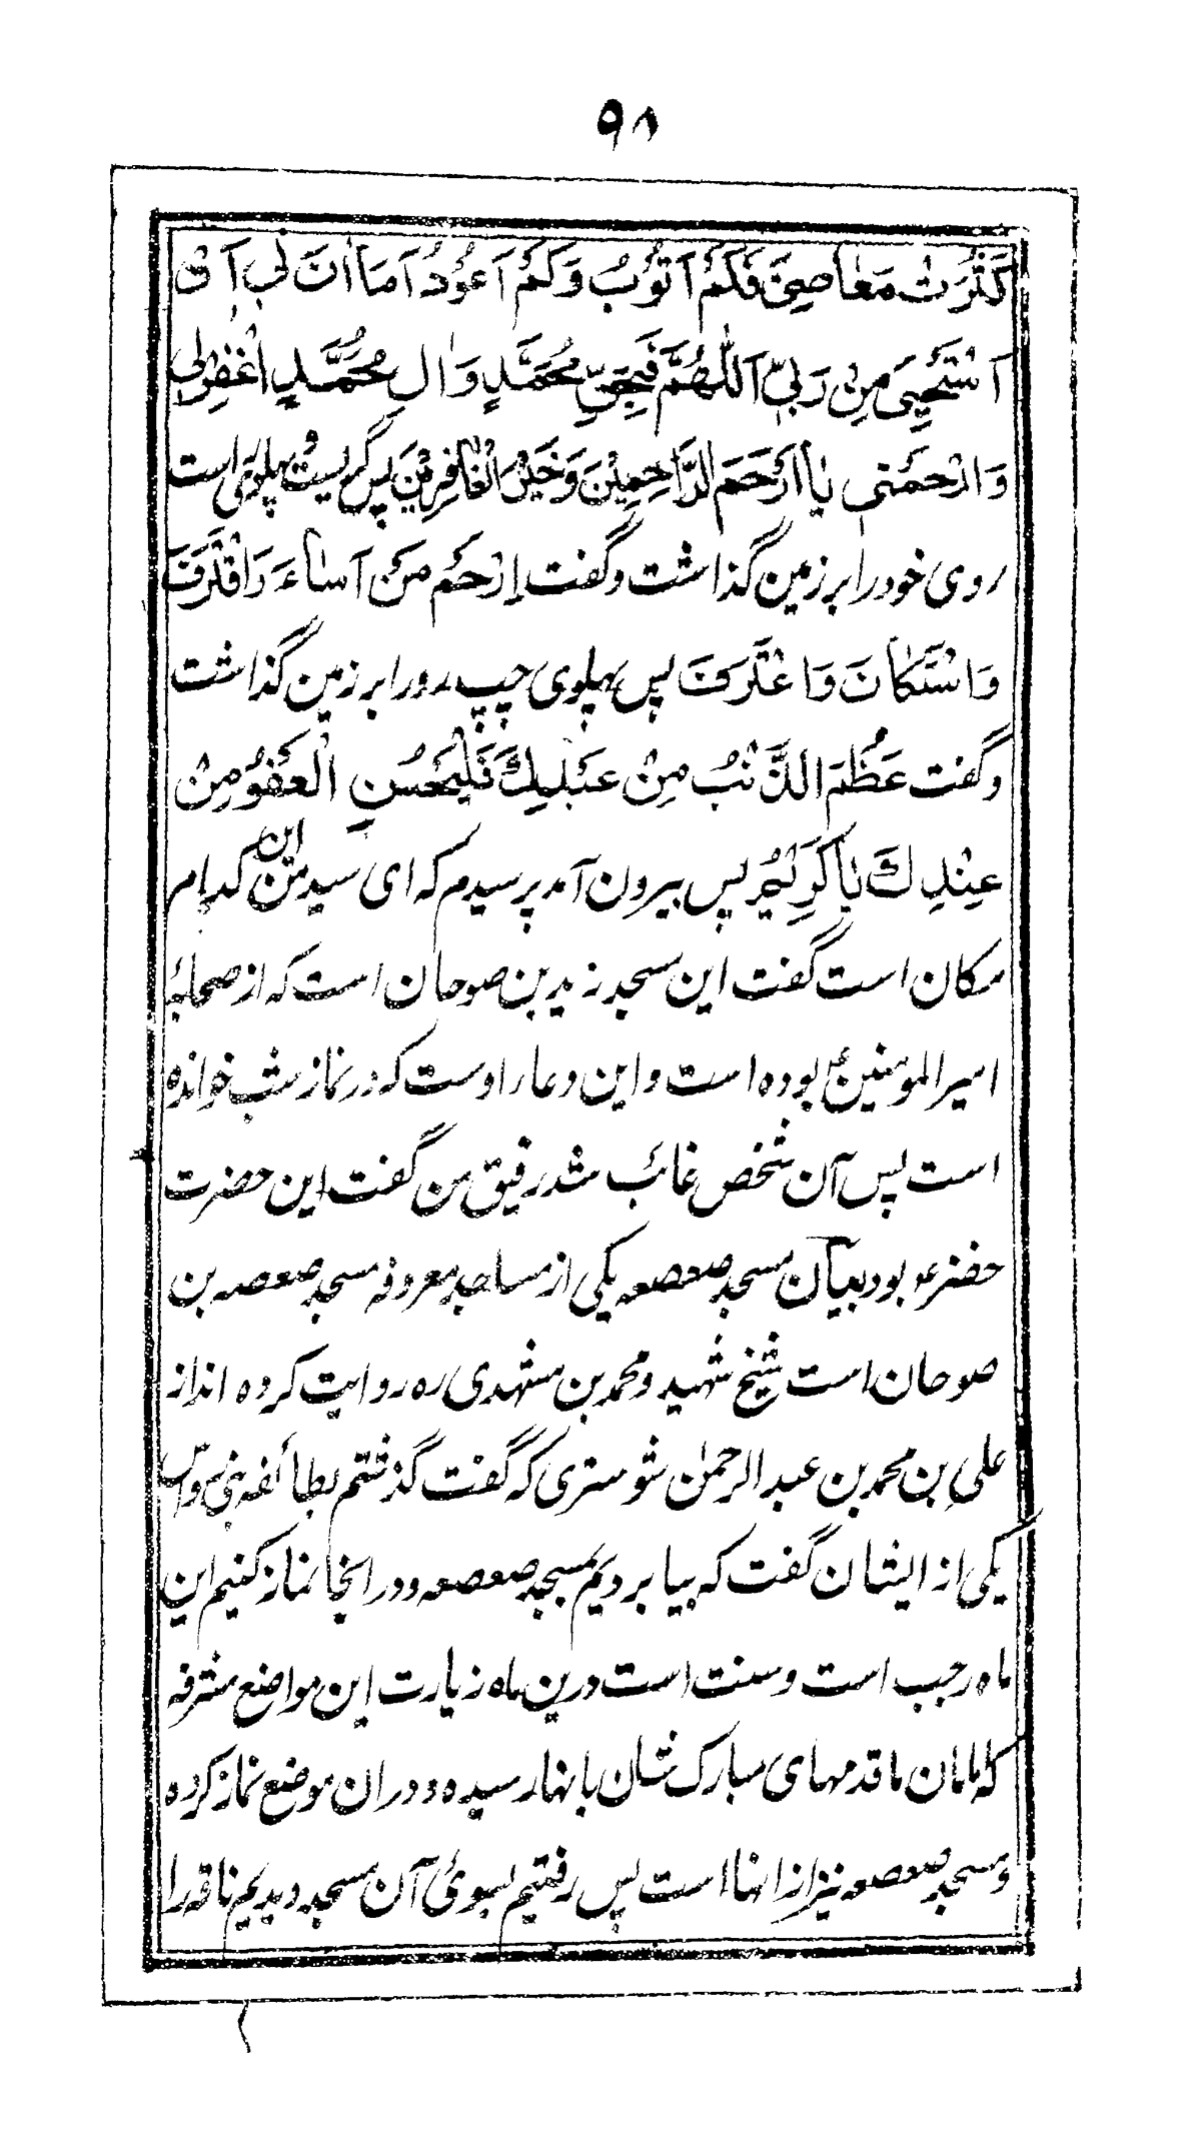 ۹۸
كَثُرَتْ مَعَاصِيَّ فَكَمْ أَتُوبُ وَكَمْ أَعُودُ أَمَا آنَ لِي أَنْ
أَسْتَحْيِيَ مِنْ رَبِّي اَللّٰهُمَّ فَبِحَقِّ مُحَمَّدٍ وَاٰلِ مُحَمَّدٍ اغْفِرْ لِي
وَارْحَمْنِي يَا أَرْحَمَ الرَّاحِمِيْنَ وَخَيْرَ الْغَافِرِيْنَ پس گریست پهلوی راست
روی خود را بر زمین گذاشت و گفت اِرْحَمْ مَنْ أَسَاءَ وَاقْتَرَفَ
وَاسْتَكَانَ وَاعْتَرَفَ پس پهلوی چپ رو را بر زمین گذاشت
و گفت عَظُمَ الذَّنْبُ مِنْ عَبْدِكَ فَلْيَحْسُنِ الْعَفْوُ مِنْ
عِنْدِكَ يَا كَرِيْمُ پس بیرون آمد پرسیدم که ای سید من این کدام
مکان است گفت این مسجد زید بن صوحان است که از صحابهٔ
امیرالمومنینؑ بوده است و این دعا را اوست که در نماز شب خوانده
است پس آن شخص غائب شد رفیق من گفت این حضرت
خضرؑ بود بیان مسجد صعصعه یکی از مساجد معروفه مسجد صعصعه بن
صوحان است شیخ شهید و محمد بن مشهدی ره روایت کرده اند از
علی بن محمد بن عبد الرحمٰن شوستری که گفت گذشتم بطائفه بنی رواس
یکی از ایشان گفت که بیا برویم بمسجد صعصعه و در انجا نماز کنیم این
ماه رجب است و سنت است درین ماه زیارت این مواضع مشرفه
که امامان ما قدمهای مبارک شان بانها رسیده و دران موضع نماز کرده
و مسجد صعصعه نیز از انها است پس رفتیم بسوئ آن مسجد دیدیم ناقه را